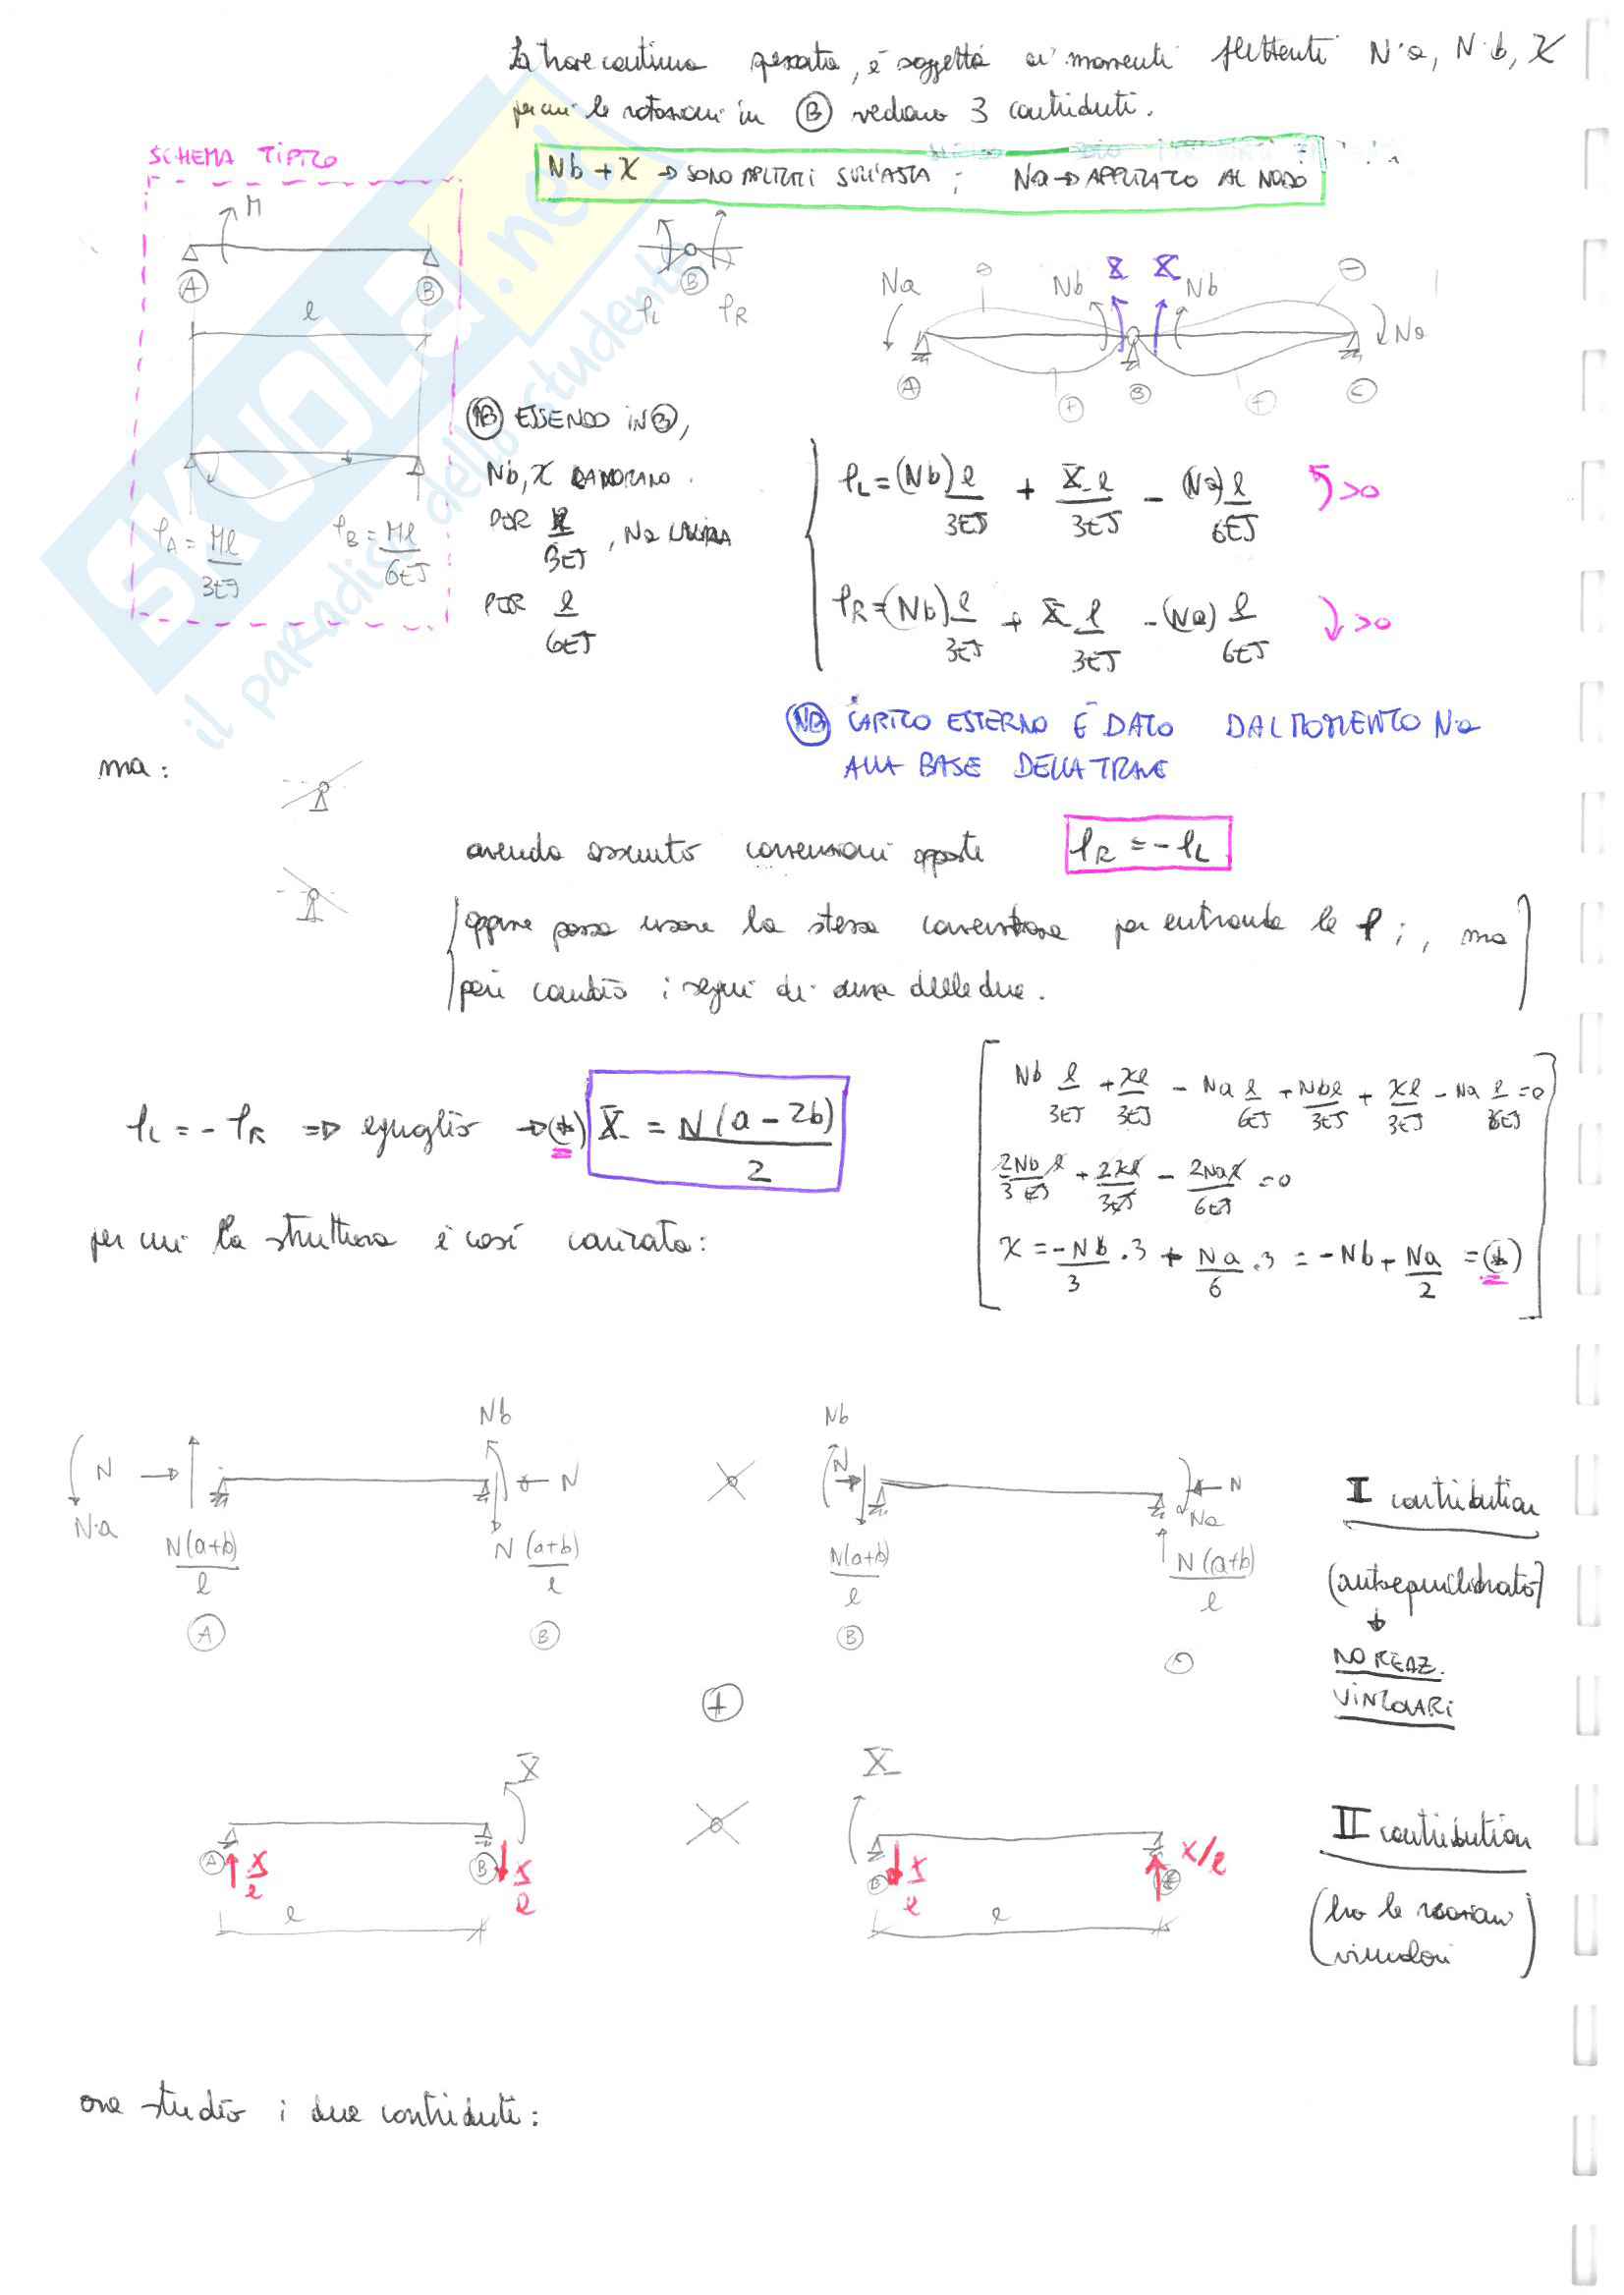 La trave continua spezzata, è soggetta ai momenti flettenti N·a, N·b, X
per cui le rotazioni in B vedono 3 contributi.
SCHEMA TIPICO
Nb + X → SONO APPLICATI SULL'ASTA ; Na → APPLICATO AL NODO
M
A B
l
φL B φR
Na Nb X X Nb Na
A B C
φA = Ml/3EJ φB = Ml/6EJ
NB ESSENDO IN B,
Nb, X LAVORANO
PER l/3EJ, Na LAVORA
PER l/6EJ
φL = (Nb) l/3EJ + X l/3EJ - (Na) l/6EJ >0
φR = (Nb) l/3EJ + X l/3EJ - (Na) l/6EJ >0
NB CARICO ESTERNO È DATO DAL MOMENTO Na
ALLA BASE DELLA TRAVE
ma:
avendo assunto convenzioni opposte φR = - φL
oppure posso usare la stessa convenzione per entrambe le φi, ma
però cambio i segni di una delle due.
φL = - φR ⇒ eguaglio → (*) X = N(a - 2b)/2
Nb l/3EJ + Xl/3EJ - Na l/6EJ + Nbl/3EJ + Xl/3EJ - Na l/6EJ = 0
2Nb l/3EJ + 2Xl/3EJ - 2Nal/6EJ = 0
X = -Nb/3 · 3 + Na/6 · 3 = -Nb + Na/2 = (*)
per cui la struttura è così caricata:
N Nb N Nb N N
N·a Na
N(a+b)/l N(a+b)/l N(a+b)/l N(a+b)/l
A B B
I contribution
(autoequilibrato)
NO REAZ.
VINCOLARI
+
X X
A X/l B X/l B X/l X/l
l l
II contribution
(ho le reazioni
vincolari)
ora studio i due contributi:
SKUOLA.net
il paradiso dello studente